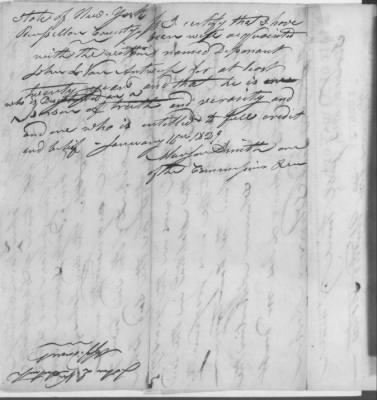 State of New-York
Rensselaer County } I certify that I have
been well acquainted
with the within named Deponant
John L Van Antwerp for at least
twenty years and that he is
who is a
a man of truth and veracity and
and one who is intitled to full credit
and belief January 1829
Smith one
of the Commissions &c
John L